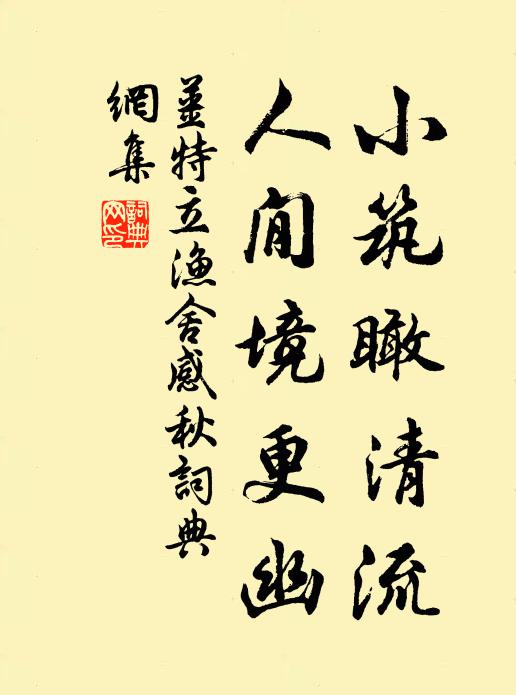 小筑瞰清流
人间境更幽
姜特立漁舍感秋詞典
網集
詞典
网印